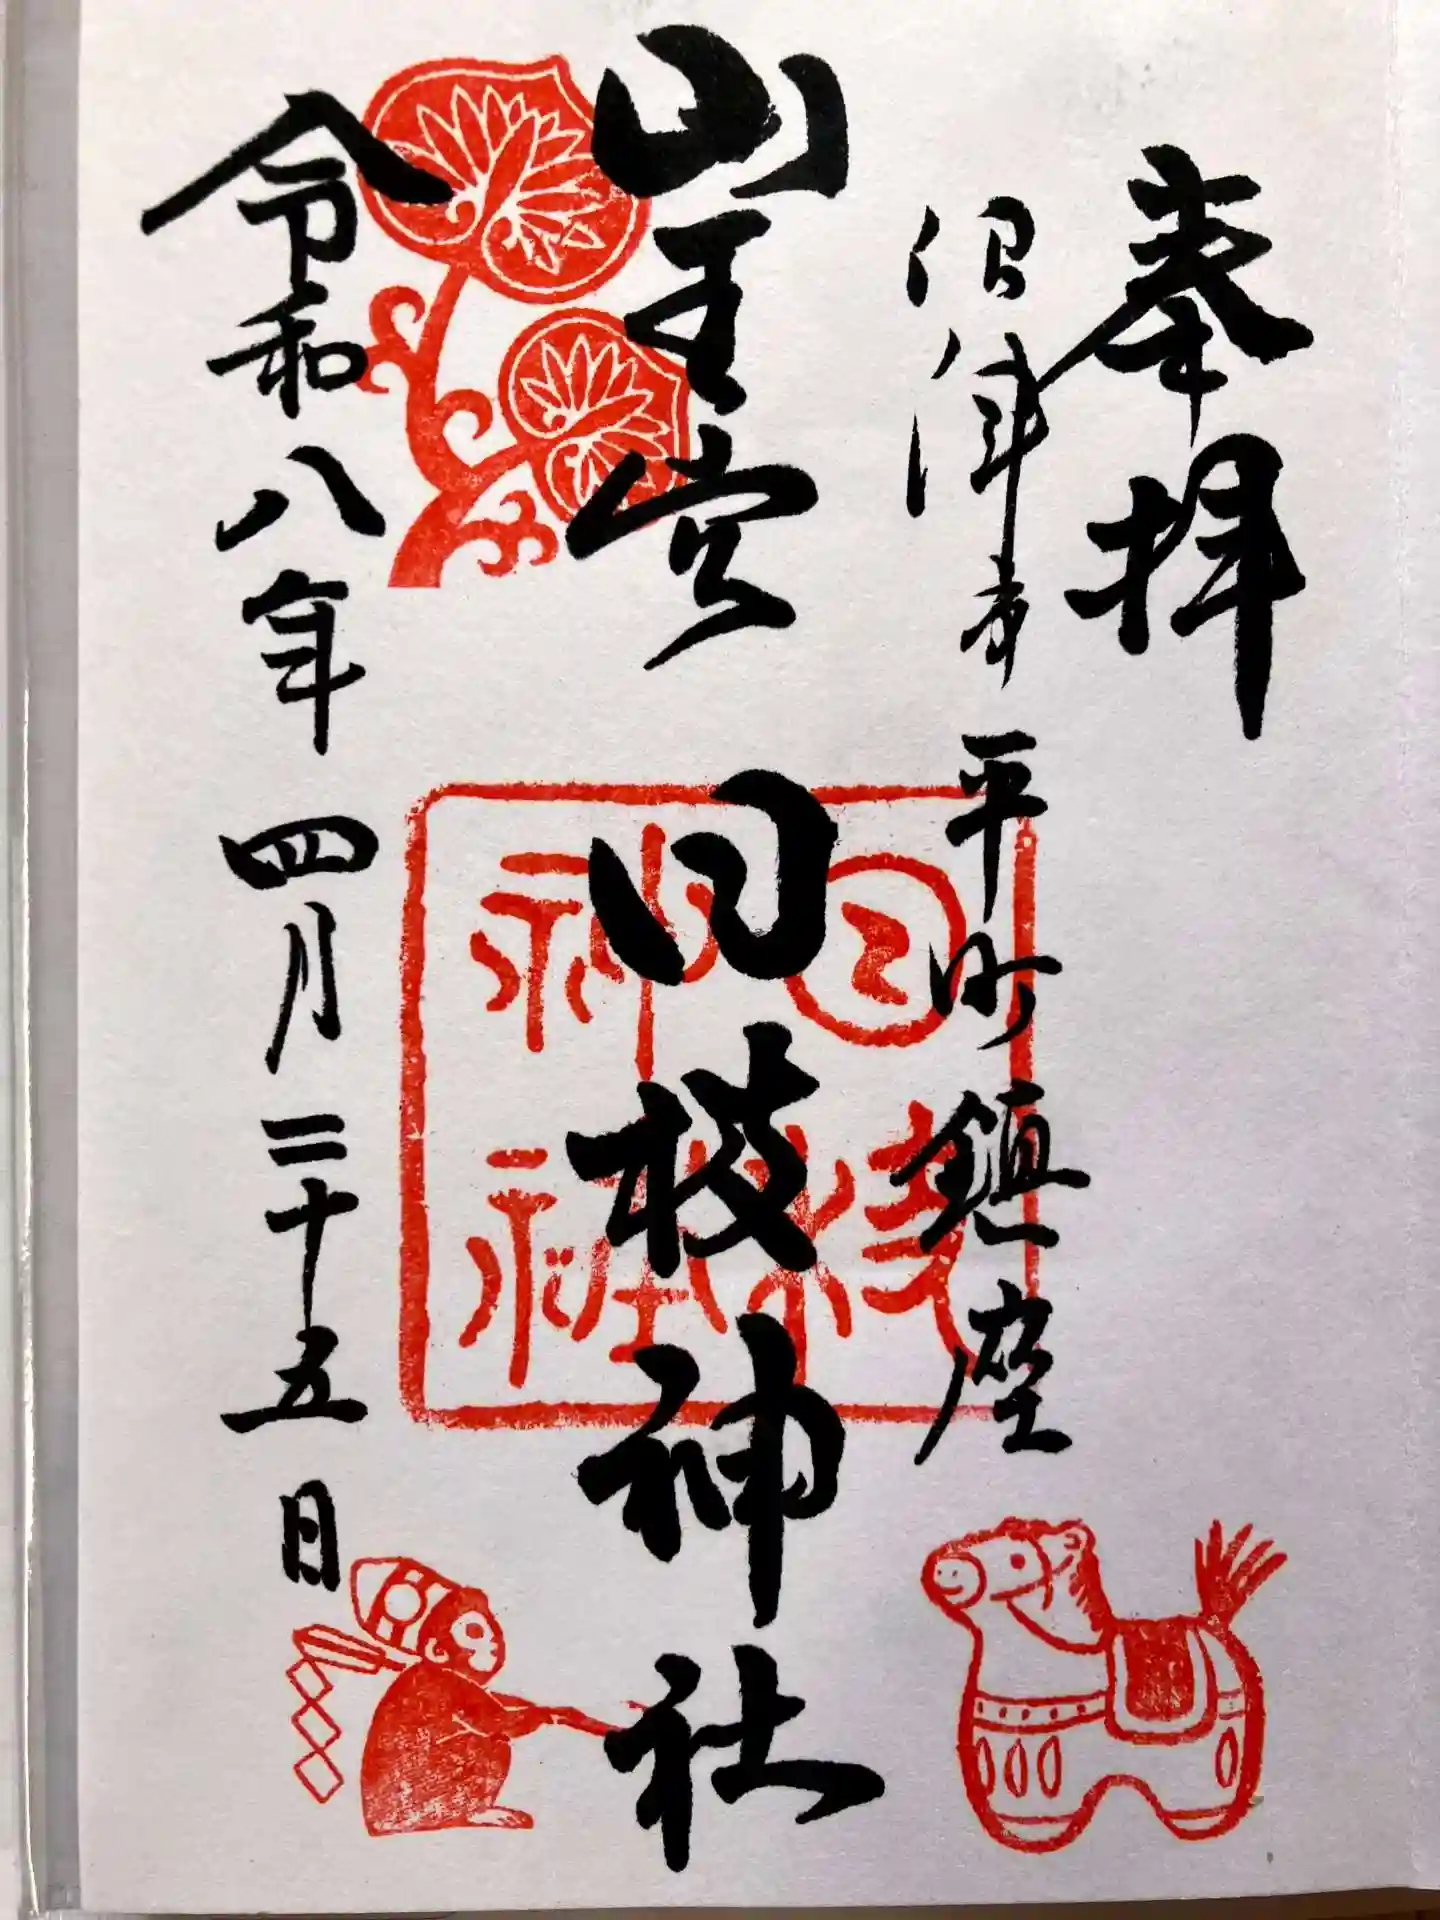 奉拝
沼津市平町鎮座
山王宮 日枝神社
令和八年 四月二十五日
日枝
神社